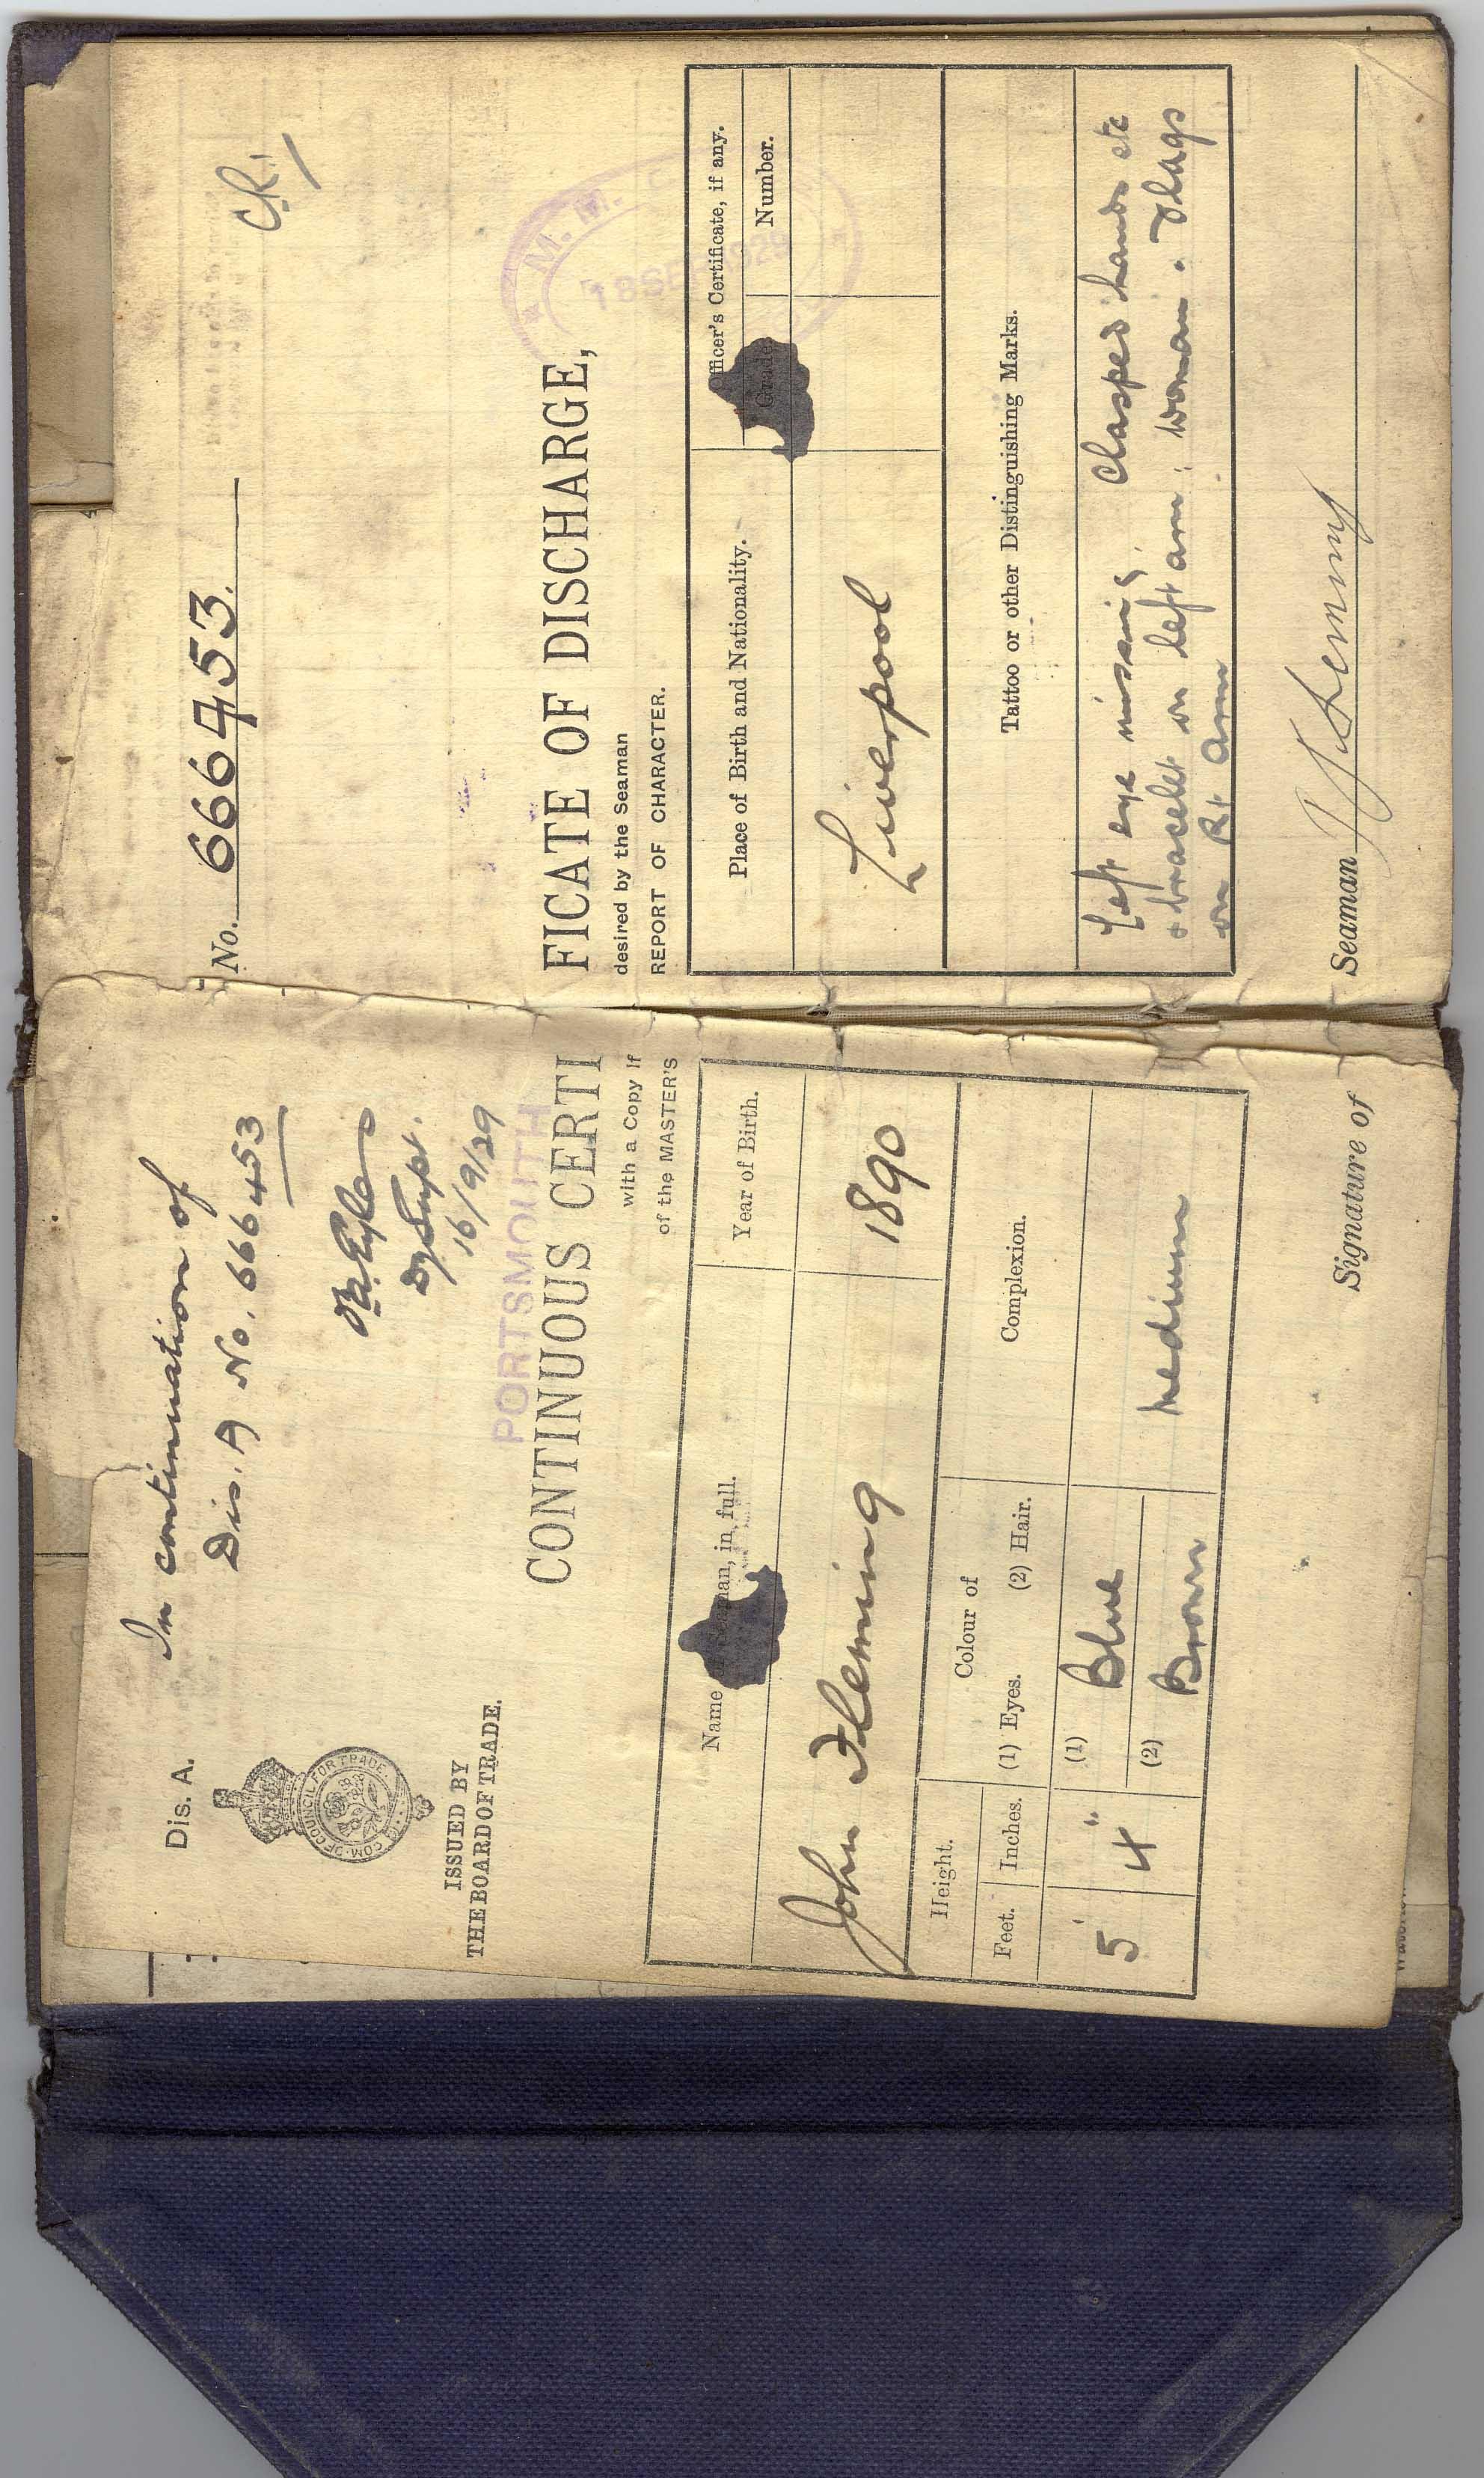 Dis. A.
In continuation of
Dis. A No. 666453
COM. OF COUNCIL FOR TRADE.
Dy Supt.
16/9/29
ISSUED BY
THE BOARD OF TRADE.
PORTSMOUTH
No. 666453.
CONTINUOUS CERTIFICATE OF DISCHARGE,
with a Copy if desired by the Seaman
of the MASTER'S REPORT OF CHARACTER.
M. M.
18 SEP 1929
Name man, in full.
Year of Birth.
Place of Birth and Nationality.
fficer's Certificate, if any.
Grade
Number.
John Fleming
1890
Liverpool
Height.
Feet.
Inches.
Colour of
(1) Eyes. (2) Hair.
Complexion.
Tattoo or other Distinguishing Marks.
5' 4"
(1) Blue
(2) Brown
Medium
Left eye missing. Clasped hands etc
+ bracelet on left arm; woman. Flags
on Rt arm
Signature of Seaman J Flemmy